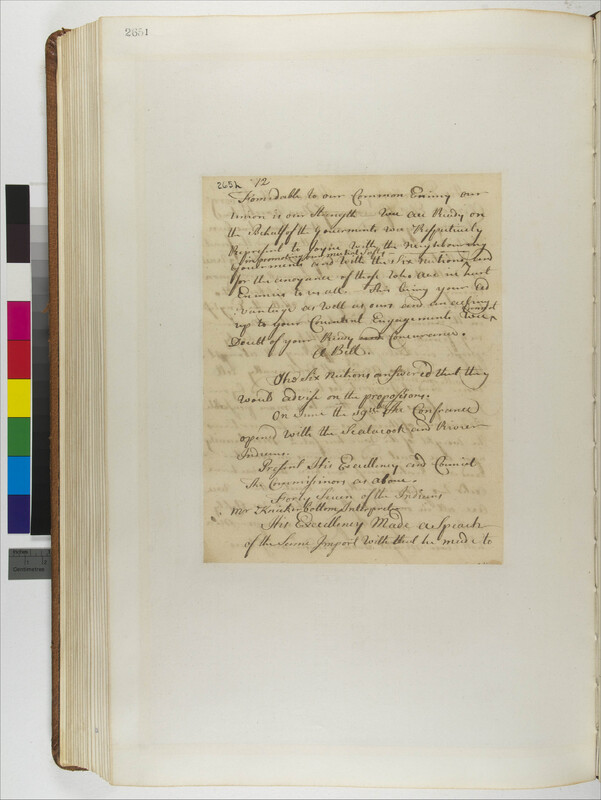 2651
2652 12
Formidable to our Common Enimy our
Union is our Strength We are Ready on
the Behalf of the Goverments we Respetively
Represent to Joyne with the Neighbouring
in promoting our mutual Safty
Goverments and with the Six Nations and
for the anoyance of those who are in
Enimies to us all. This being your Ad
vantage as well as ours and an acting
Council
up to your Covenant Engagements
Doubt of your Ready and Concurance.
A Belt.
The Six Nations answered that they
would advise on the propositions.
On June the 19th The Confrance
opened with the Scatacook and River
Indians.
Present His Excellency and Council
The Commissinors as above.
Forty Seven of the Indians
Mr Knickerbottom Interpreter
His Excellency Made a Speach
of the Same Import with that he made to
Inches
Centimetres